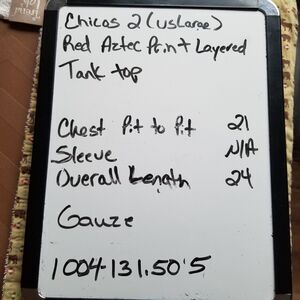 Chicos 2 (usLarge)
Red Aztec Print Layered
Tank top
Chest Pit to Pit 21
Sleeve N/A
Overall Length 24
Gauze
1004-131.50'5